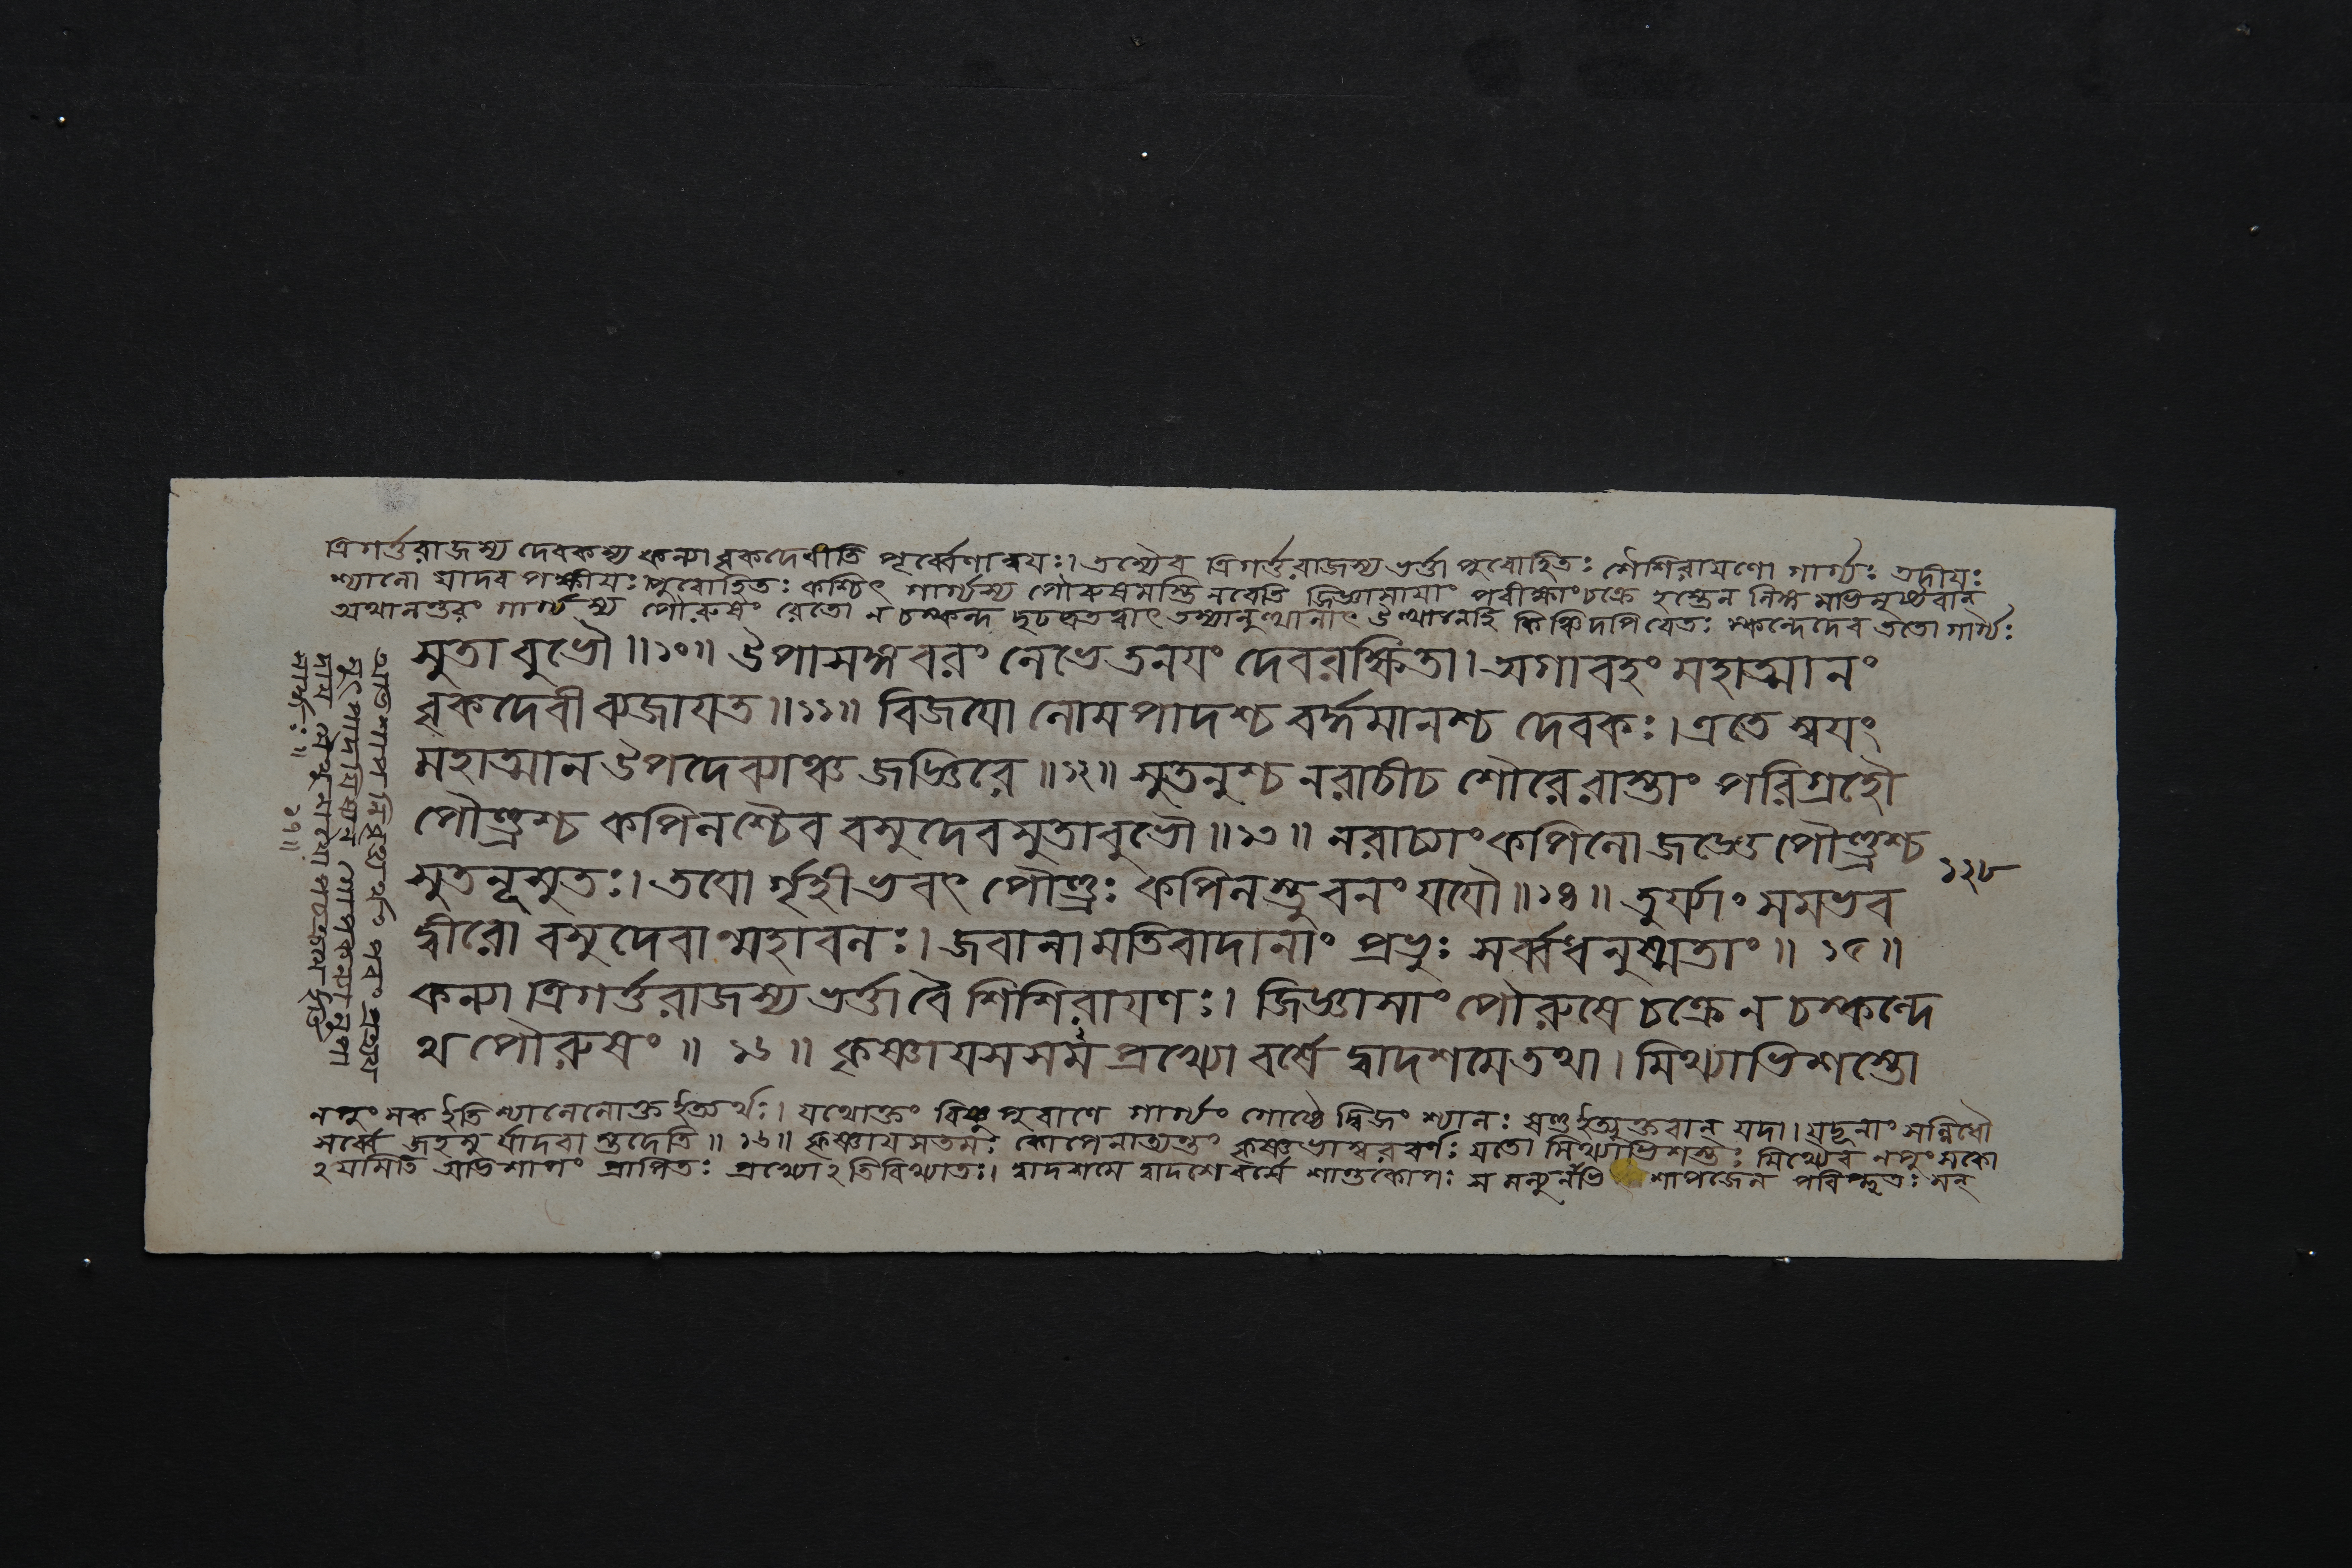 ত্রিগর্ত্তরাজস্য দেবকস্য কন্যা বৃকদেবীতি পূর্ব্বেণান্বয়ঃ। তস্যৈব ত্রিগর্ত্তরাজস্য ভর্ত্তা পুরোহিতঃ শৈশিরায়ণো গার্গ্যঃ তদীয়ঃ
শ্যালো যাদব পক্ষীয়ঃ পুরোহিতঃ কশ্চিৎ গার্গ্যস্য পৌরুষমস্তি নবেতি জিজ্ঞাসায়াং পরীক্ষাংচক্রে হস্তেন লিঙ্গ মভিমৃষ্টবান্
অথানন্তরং গার্গ্যস্য পৌরুষং রেতো ন চস্কন্দ তস্যানুত্থানাৎ উত্থানেহি কিঞ্চিদপিরেতঃ স্কন্দেদেব ততো গার্গ্যঃ
সুতাবুভৌ॥১০॥ উপাসঙ্গবরং লেভে তনয়ং দেবরক্ষিতা। অগাবহং মহাত্মানং
বৃকদেবী ব্যজায়ত॥১১॥ বিজয়ো লোমপাদশ্চ বর্দ্ধমানশ্চ দেবকঃ। এতে স্বয়ং
মহাত্মান উপদেব্যাঞ্চ জজ্ঞিরে॥১২॥ সুতনুশ্চ নরাচীচ শৌরেরাস্তাং পরিগ্রহৌ
পৌণ্ড্রশ্চ কপিলশ্চৈব বসুদেবসুতাবুভৌ॥১৩॥ নরাচ্যাং কপিলো জজ্ঞে পৌণ্ড্রশ্চ
১২৮
সুতনূসুতঃ। তয়ো র্নৃহী ভবৎ পৌণ্ড্রঃ কপিলস্তু বনং যযৌ॥১৪॥ তুর্য্যাং সমভব
দ্বীরো বসুদেবান্মহাবলঃ। জবানামতিবাদানাং প্রভুঃ সর্ব্বধনুষ্মতাং॥১৫॥
কন্যা ত্রিগর্ত্তরাজস্য ভর্ত্তা বৈ শিশিরায়ণঃ। জিজ্ঞাসাং পৌরুষে চক্রে ন চস্কন্দে
থ পৌরুষং॥১৬॥ কৃষ্ণায়সসম প্রখ্যো বর্ষে দ্বাদশমে তথা। মিথ্যাভিশস্তো
নপুংসক ইতি শ্যালেনোক্ত ইত্যর্থঃ। যথোক্তং বিষ্ণুপুরাণে গার্গ্যং গোষ্ঠে দ্বিজং শ্যালঃ ষণ্ড ইত্যুক্তবান্ যদা। যদূনাং সন্নিধৌ
সর্ব্বে জহসু র্যাদবা স্তদেতি॥১৬॥ কৃষ্ণায়সতমঃ কোপেনাত্যন্তং কৃষ্ণ বর্ণঃ যতো মিথ্যাভিশস্তঃ মিথ্যৈব নপুংসকো
২য়মিতি অভিশাপং প্রাপিতঃ প্রখ্যো২তিবিখ্যাতঃ। দ্বাদশমে দ্বাদশে বর্ষে শান্তকোপঃ শাপজেন
সার্থঃ॥১৭॥